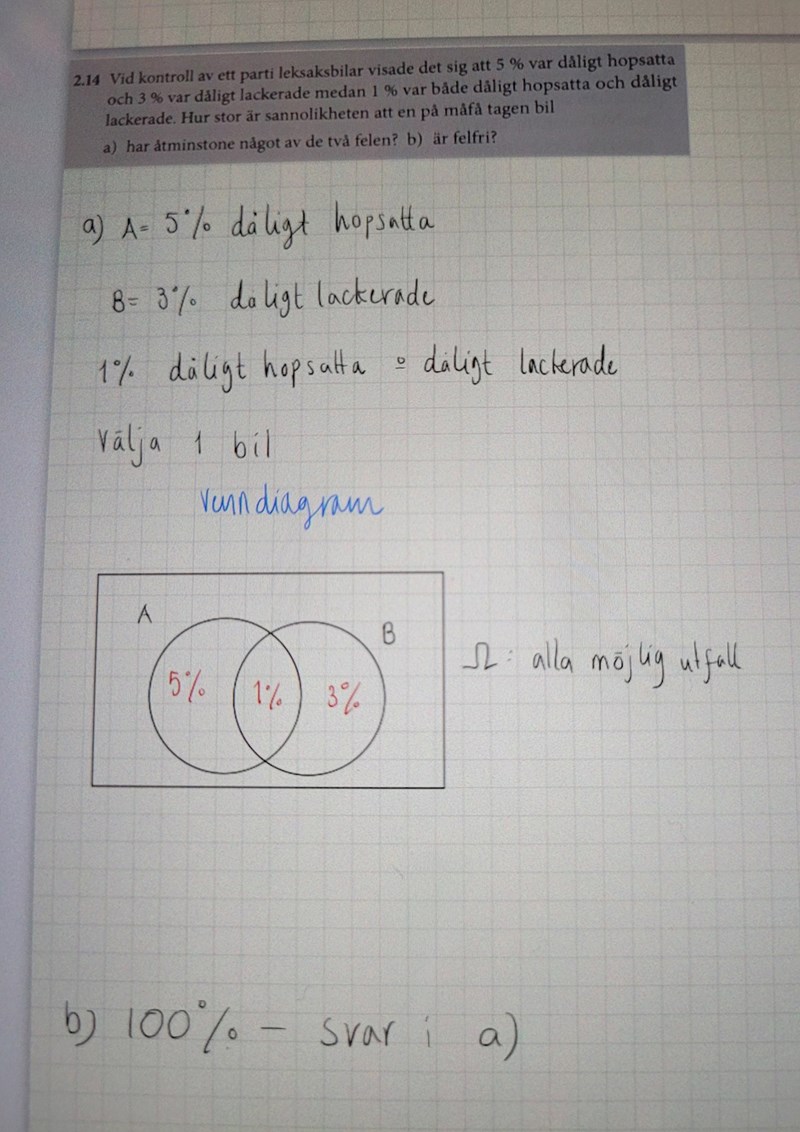 2.14 Vid kontroll av ett parti leksaksbilar visade det sig att 5 % var dåligt hopsatta
och 3 % var dåligt lackerade medan 1 % var både dåligt hopsatta och dåligt
lackerade. Hur stor är sannolikheten att en på måfå tagen bil
a) har åtminstone något av de två felen? b) är felfri?
a) A= 5% dåligt hopsatta
B= 3% dåligt lackerade
1% dåligt hopsatta o dåligt lackerade
Välja 1 bil
venndiagram
A
B
5% 1% 3%
Ω: alla möjlig utfall
b) 100% - svar i a)